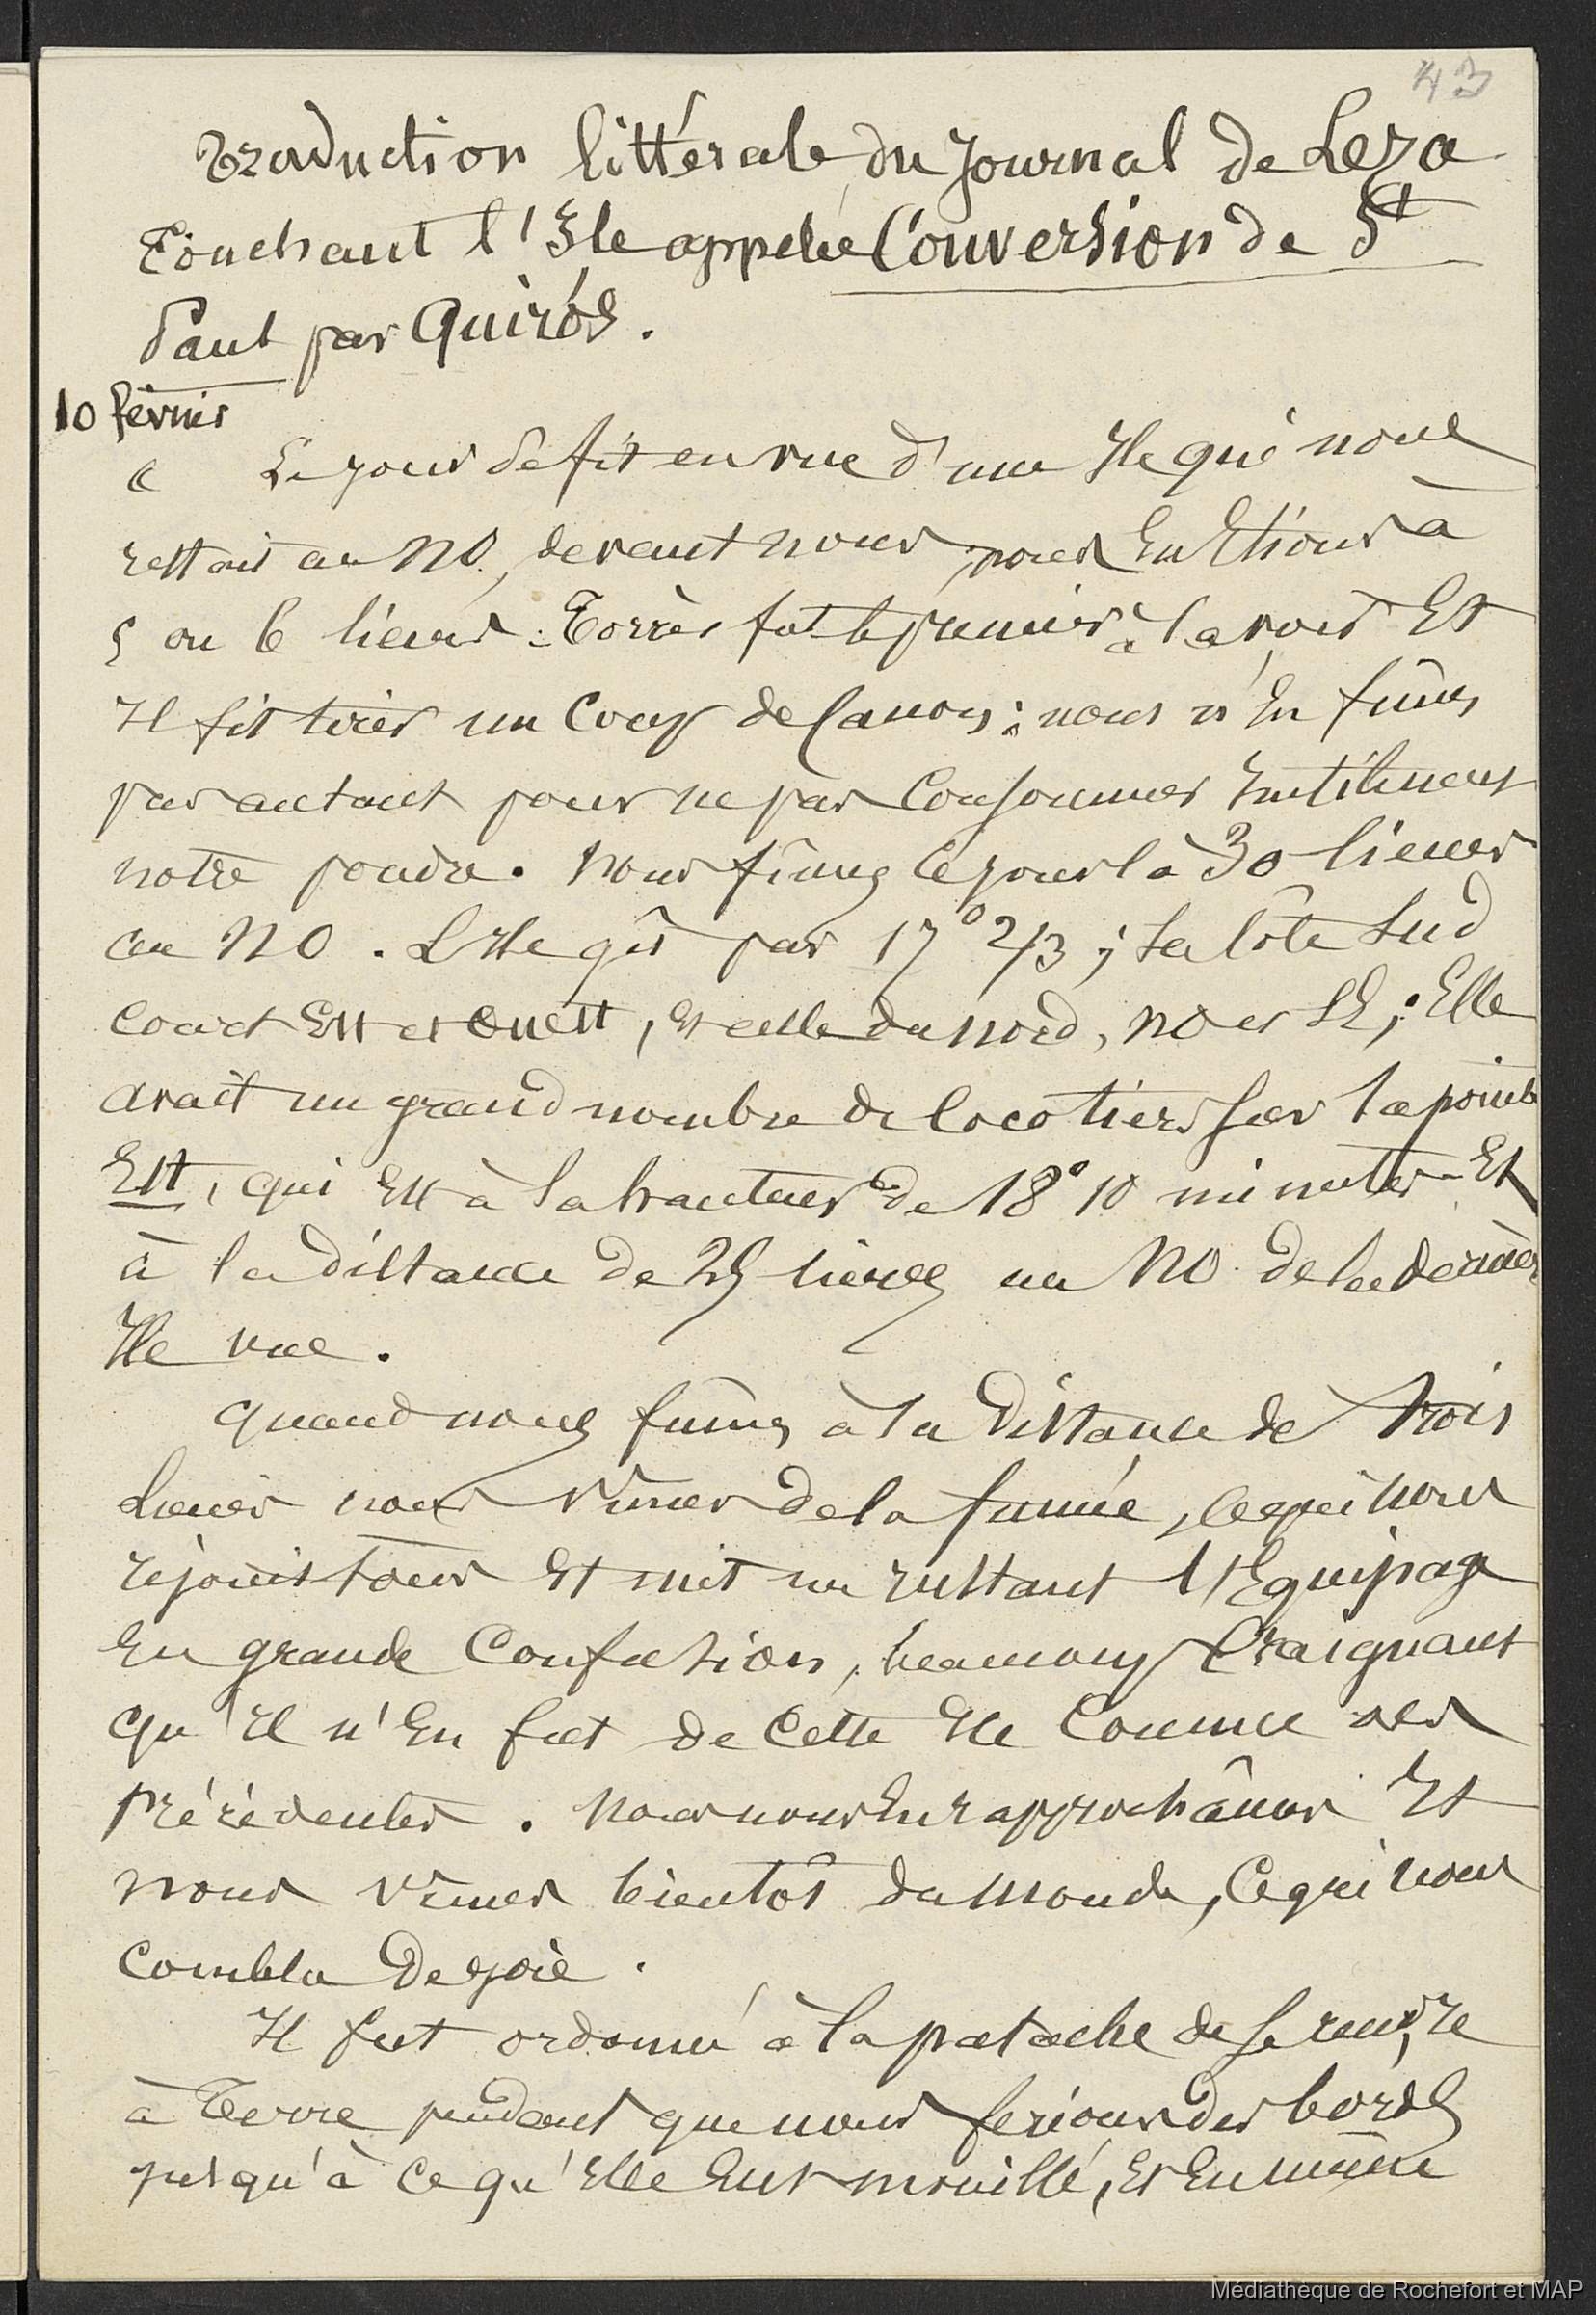 43
Traduction littérale du Journal de Leza
Touchant l'Ile appelée Conversion de St
Paul par Quirós.
10 février
« Le jour se fit en vue d'une Ile qui nous
restait au NO, devant nous, nous en étions à
5 ou 6 lieues. Torrès fut le premier à la voir Et
Il fit tirer un coup de canon; nous n'en fîmes
pas autant pour ne pas consommer inutilement
notre poudre. Nous fîmes ce jour là 30 lieues
au NO. L'Ile gît par 17° 2/3; sa côte sud
court Est et Ouest, et celle du nord, NO et SE; Elle
avait un grand nombre de cocotiers sur la pointe
Est, qui Est à la hauteur de 18° 10 minutes Et
à la distance de 25 lieues au NO de la dernière
Ile vue.
Quand nous fûmes à la distance de trois
Lieues nous vîmes de la fumée, ce qui nous
réjouit tous Et mit un instant l'Equipage
En grande confusion, beaucoup craignant
qu'Il n'En fut de cette Ile comme des
précédentes. Nous nous En rapprochâmes Et
nous vîmes bientôt du monde, ce qui nous
combla de joie.
Il fut ordonné à la patache de se rendre
à Terre pendant que nous ferions des bords
jusqu'à ce qu'Elle Eut mouillé, Et En même
Médiathèque de Rochefort et MAP